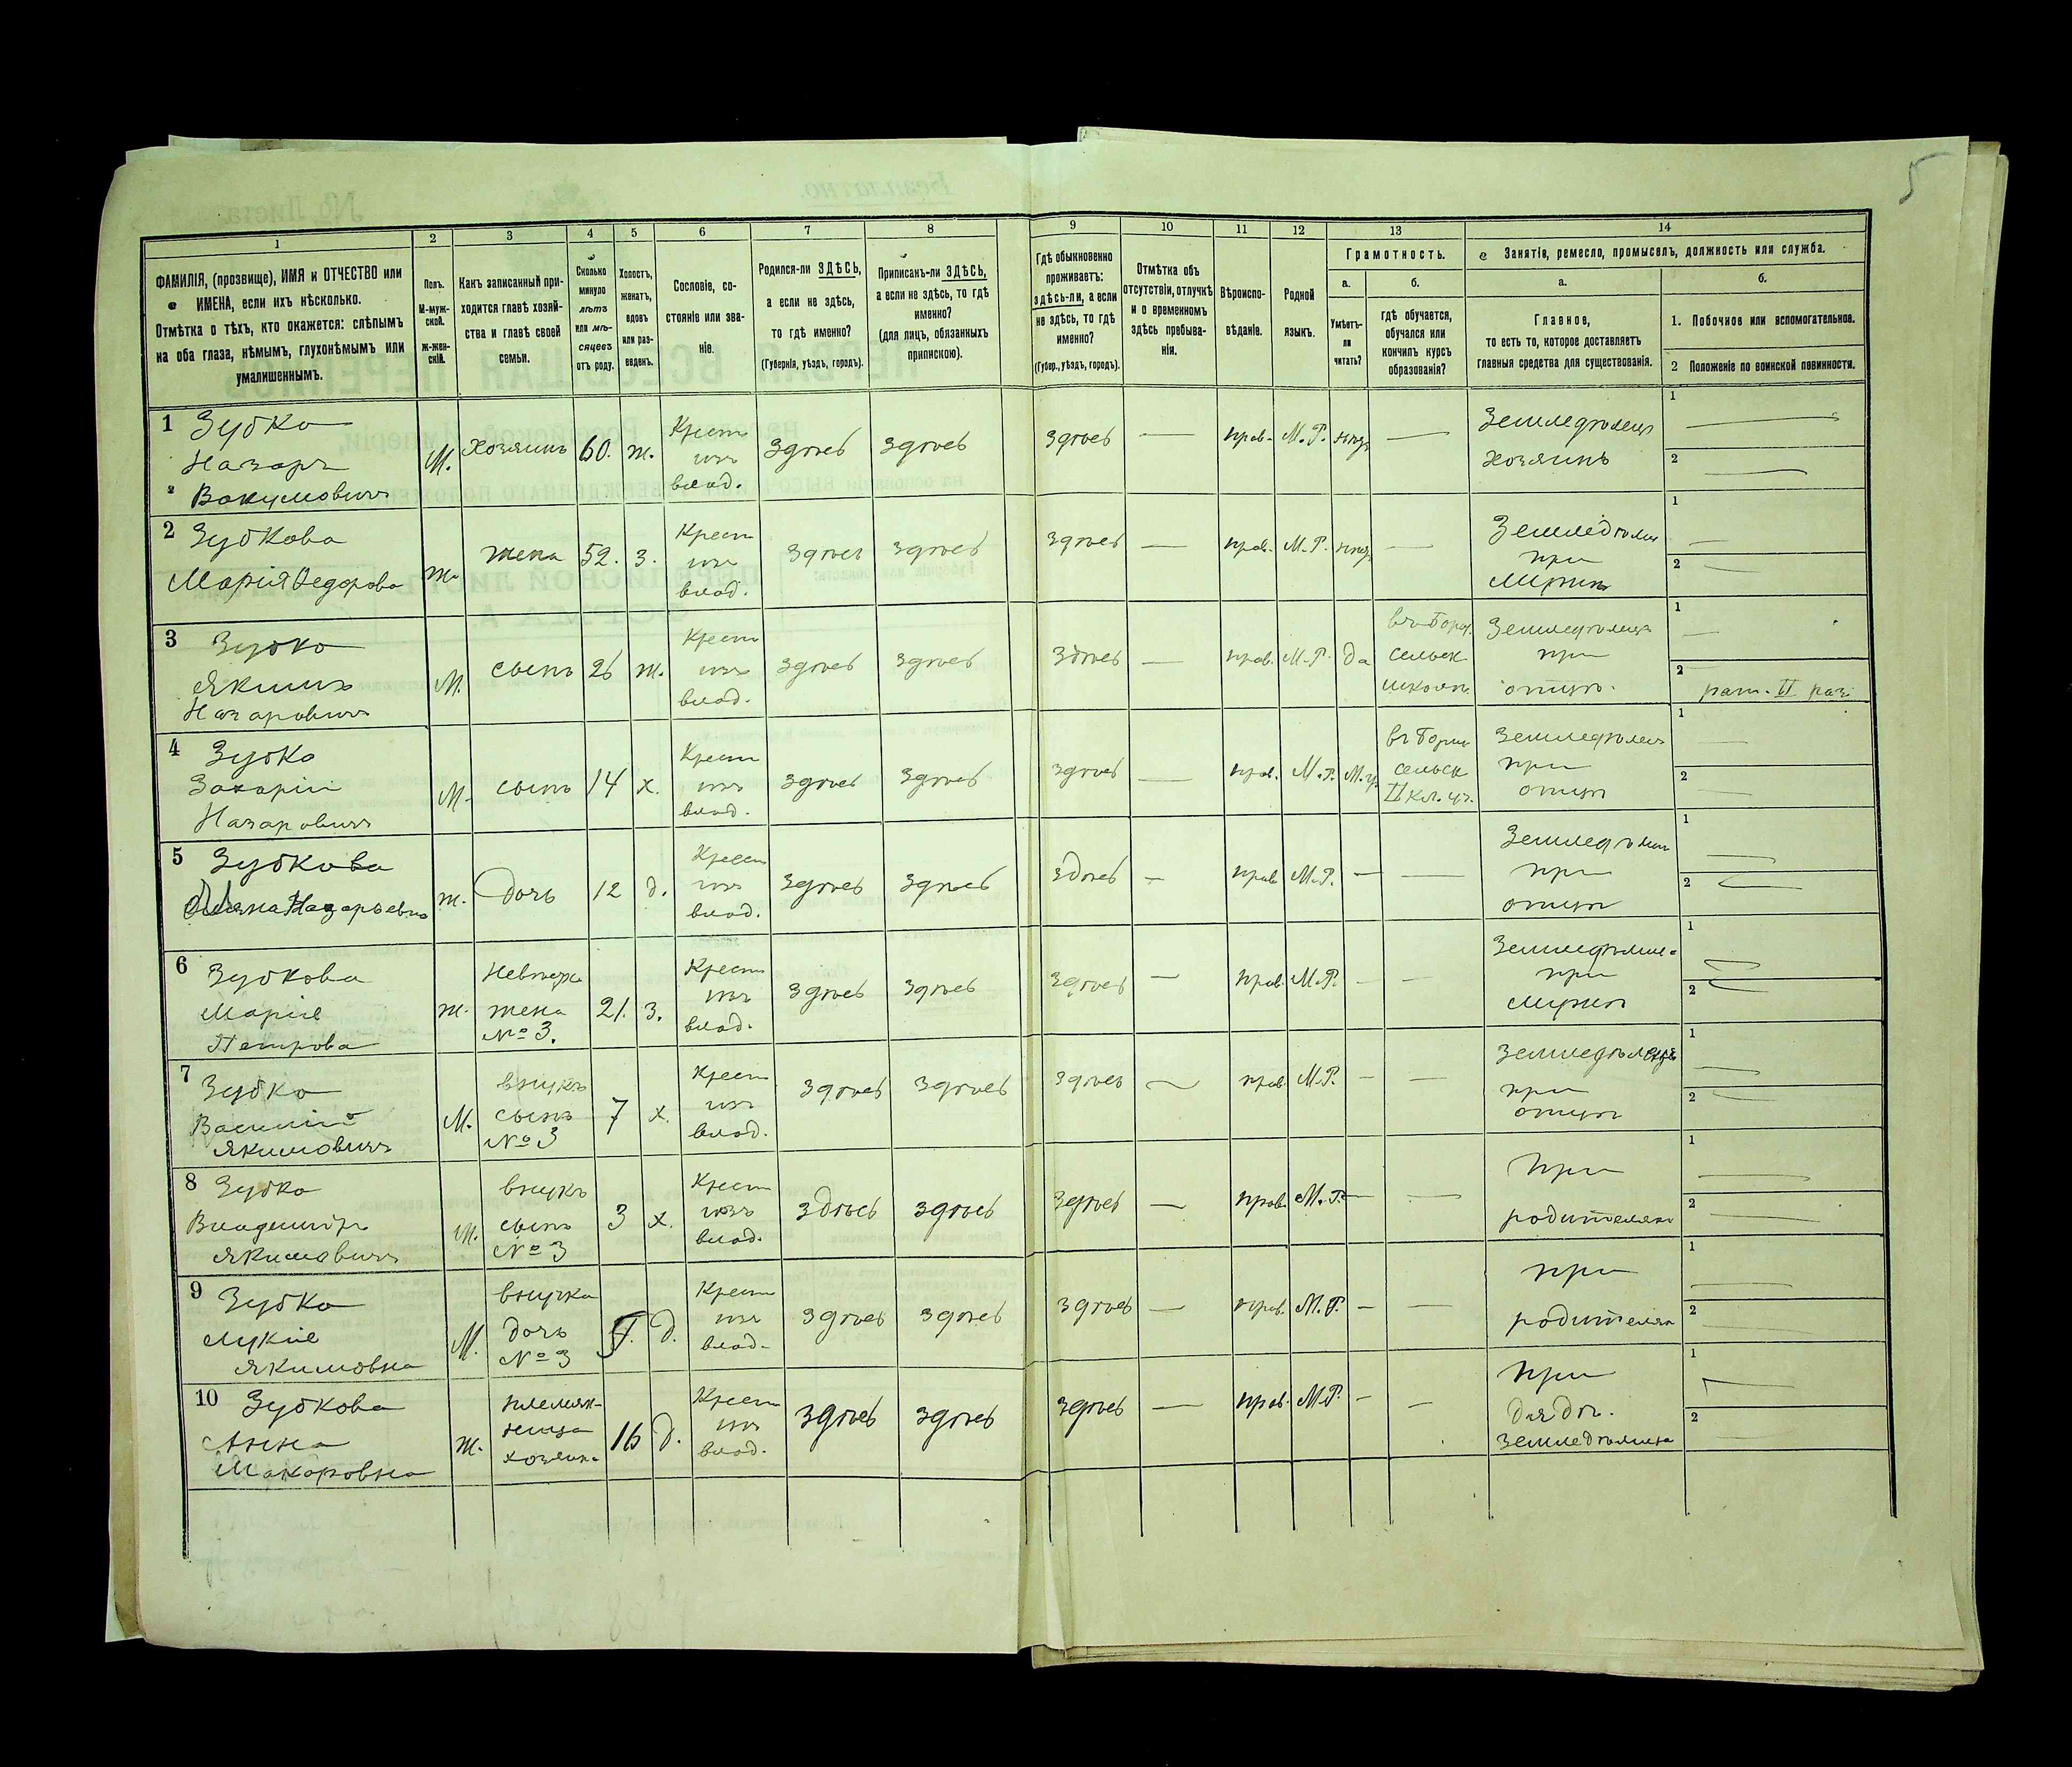 5
1 2 3 4 5 6 7 8 9 10 11 12 13 14
ФАМИЛІЯ, (прозвище), ИМЯ и ОТЧЕСТВО или
ИМЕНА, если ихъ нѣсколько.
Отмѣтка о тѣхъ, кто окажется: слѣпымъ
на оба глаза, нѣмымъ, глухонѣмымъ или
умалишеннымъ.
Полъ.
М-муж-
ской.
Ж-жен-
скій.
Какъ записанный при-
ходится главѣ хозяй-
ства и главѣ своей
семьи.
Сколько
минуло
лѣтъ
или мѣ-
сяцевъ
отъ роду.
Холостъ,
женатъ,
вдовъ
или раз-
веденъ.
Сословіе, со-
стояніе или зва-
ніе.
Родился-ли ЗДѢСЬ,
а если не здѣсь,
то гдѣ именно?
(Губернія, уѣздъ, городъ).
Приписанъ-ли ЗДѢСЬ,
а если не здѣсь, то гдѣ
именно?
(для лицъ, обязанныхъ
припискою).
Гдѣ обыкновенно
проживаетъ:
здѣсь-ли, а если
не здѣсь, то гдѣ
именно?
(Губер., уѣздъ, городъ).
Отмѣтка объ
отсутствіи, отлучкѣ
и о временномъ
здѣсь пребыва-
ніи.
Вѣроиспо-
вѣданіе.
Родной
языкъ.
Грамотность.
а.
Умѣетъ-
ли
читать?
б.
гдѣ обучается,
обучался или
кончилъ курсъ
образованія?
Занятіе, ремесло, промыселъ, должность или служба.
а.
Главное,
то есть то, которое доставляетъ
главныя средства для существованія.
б.
1. Побочное или вспомогательное.
2 Положеніе по воинской повинности.
1 Зубко
Назаръ
Вакумовичъ
М. хозяинъ 60. ж.
Крест
изъ
влад.
здѣсь здѣсь здѣсь — прав. М.Р. —
Земледѣлецъ
хозяинъ
1
2
2 Зубкова
Марія Федорова
ж. жена 52. з.
Крест
изъ
влад.
здѣсь здѣсь здѣсь — прав. М.Р. —
при
1
2
3 Зубко
Якимъ
Назаровичъ
М. сынъ 26 ж.
Крест
изъ
влад.
здѣсь здѣсь здѣсь — прав. М.Р. да
сельск.
школѣ
при
отцѣ.
1
2
рат. II раз.
4 Зубко
Захарій
Назаровичъ
М. сынъ 14 х.
Крест
изъ
влад.
здѣсь здѣсь здѣсь — прав. М.Р.
сельск
II кл. уч.
при
отцѣ
1
2
5 Зубкова
Назарьевна
ж. дочь 12 д.
Крест
изъ
влад.
здѣсь здѣсь здѣсь — прав М.Р. — —
при
отцѣ
1
2
6 Зубкова
Марія
Петрова
ж.
жена
№ 3.
21. з.
Крест
изъ
влад.
здѣсь здѣсь здѣсь — прав. М.Р. — —
при
1
2
7 Зубко
Василій
Якимовичъ
М.
внукъ
сынъ
№ 3
7 х.
Крест
изъ
влад.
здѣсь здѣсь здѣсь — прав М.Р. — —
при
отцѣ
1
2
8 Зубко
Владиміръ
Якимовичъ
М.
внукъ
сынъ
№ 3
3 х.
Крест
изъ
влад.
здѣсь здѣсь здѣсь — прав. М.Р. — —
при
родителяхъ
1
2
9 Зубко
Лукія
Якимовна
М.
внучка
дочь
№ 3
д.
Крест
изъ
влад.
здѣсь здѣсь здѣсь — прав. М.Р. — —
при
родителяхъ
1
2
10 Зубкова
Анна
Макаровна
ж.
племян-
ница
хозяина
16 д.
Крест
изъ
влад.
здѣсь здѣсь здѣсь — прав. М.Р. — —
при
дядѣ.
1
2